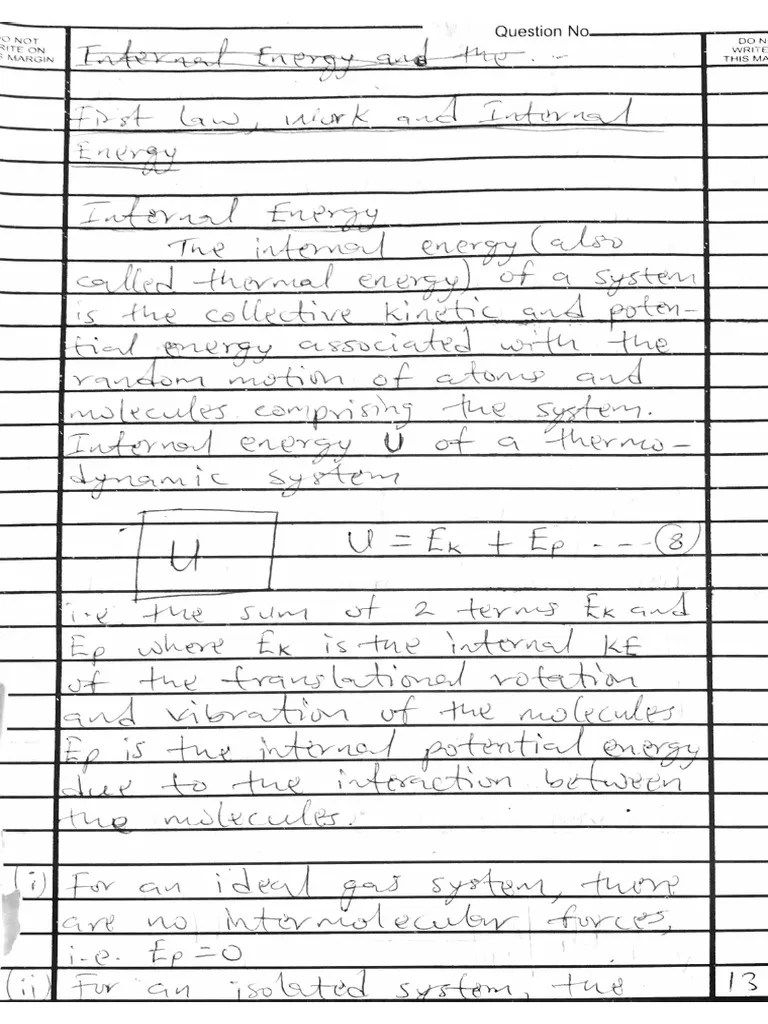 Question No
DO NOT
WRITE ON
THIS MARGIN
DO N
WRITE
THIS MA
Internal Energy and the ...
First law, work and Internal
Energy
Internal Energy
The internal energy (also
called thermal energy) of a system
is the collective kinetic and poten-
tial energy associated with the
random motion of atoms and
molecules comprising the system.
Internal energy U of a thermo-
dynamic system
U
U = EK + Ep --- (8)
i.e the sum of 2 terms EK and
Ep where EK is the internal KE
of the translational rotation
and vibration of the molecules
Ep is the internal potential energy
due to the interaction between
the molecules.
(i) For an ideal gas system, there
are no intermolecular forces,
i.e. Ep = 0
(ii) For an isolated system, the
13